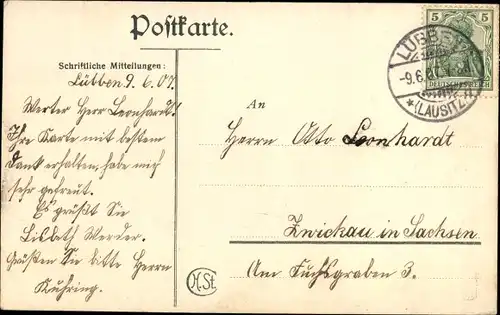 Postkarte.
Schriftliche Mitteilungen:
Lübben 9.6.07.
Werter Herr Leonhardt!
Ihre Karte mit bestem
Dank erhalten, habe mich
sehr gefreut.
Es grüßt Sie
Lisbeth Werder.
Grüßen Sie bitte Herrn
Kühring.
An
Herrn Otto Leonhardt
Zwickau in Sachsen
Am Fuchsgraben 3.
H.St.
5 5
DEUTSCHES REICH
LÜBBEN
-9.6.07
*(LAUSITZ)